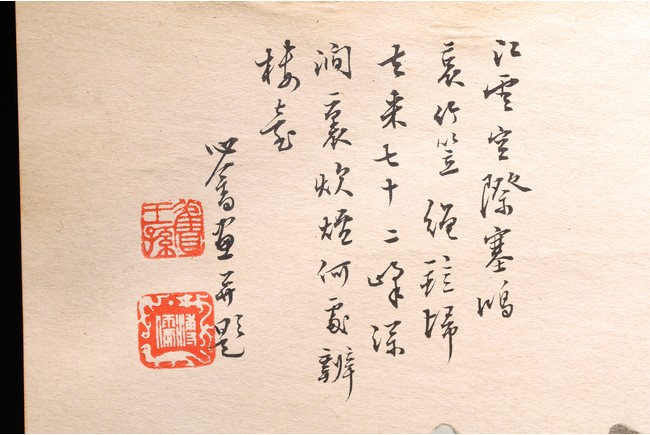 江雲空際塞鴻
哀竹笠繩鞋歸
去來七十二峰深
澗裏炊煙何處辨
樓臺
心畬畫并題
舊王孫
溥儒